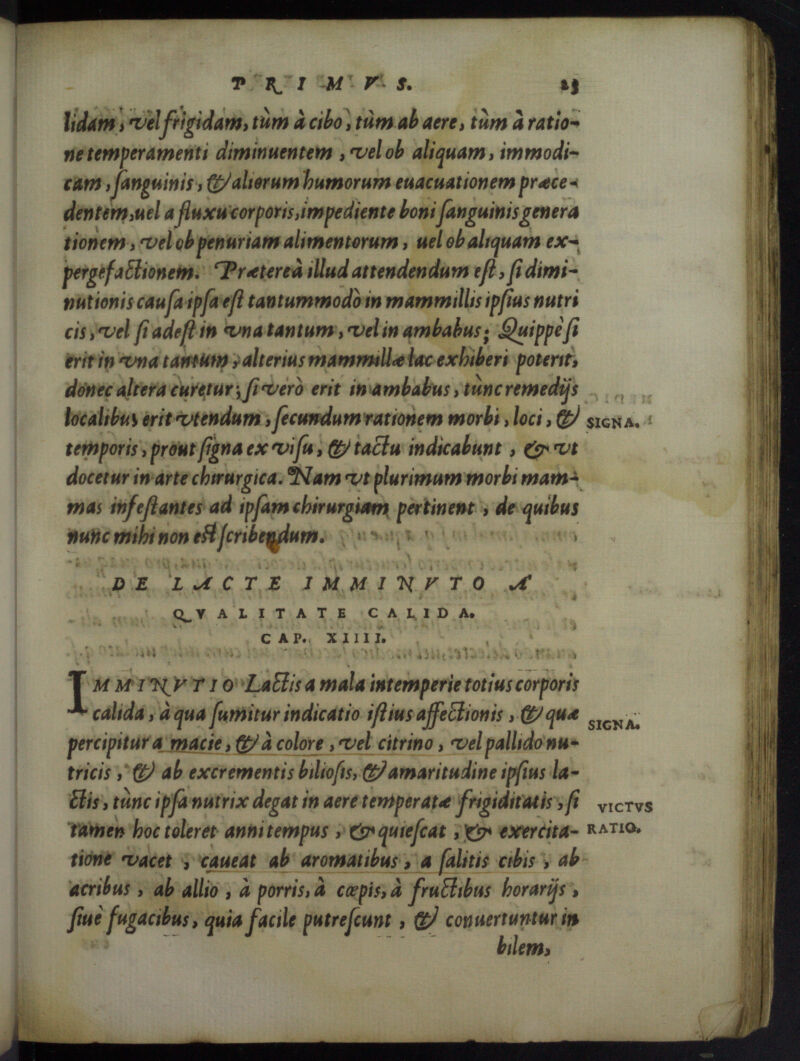 PRIMVS. 23
lidam, vel frigidam, tùm à cibo, tùm ab aere, tùm à ratio-
ne temperamenti diminuentem, vel ob aliquam, immodi-
cam, sanguinis, & aliorum humorum euacuationem præce-
dentem, uel a fluxu corporis, impediente boni sanguinis genera
tionem, vel ob penuriam alimentorum, uel ob aliquam ex-
pergefactionem. Prætereà illud attendendum est, si dimi-
nutionis causa ipsa est tantummodò in mammillis ipsius nutri
cis, vel si adest in vna tantum, vel in ambabus; Quippè si
erit in vna tantùm, alterius mammillæ lac exhiberi poterit,
donec altera curetur; si verò erit in ambabus, tùnc remedijs
localibus erit vtendum, secundum rationem morbi, loci, & SIGNA.
temporis, prout signa ex visu, & tactu indicabunt, & vt
docetur in arte chirurgica. Nam vt plurimum morbi mam-
mas infestantes ad ipsam chirurgiam pertinent, de quibus
nunc mihi non est scribendum.
DE LACTE IMMINVTO A'
QVALITATE CALIDA.
CAP. XIIII.
IMMINVTIO Lactis a mala intemperie totius corporis
calida, à qua sumitur indicatio istius affectionis, & quæ SIGNA.
percipitur a macie, & à colore, vel citrino, vel pallido nu-
tricis, & ab excrementis biliosis, & amaritudine ipsius la-
ctis, tùnc ipsa nutrix degat in aere temperatæ frigiditatis, si VICTVS
tamen hoc toleret anni tempus, & quiescat, & exercita- RATIO.
tione vacet, caueat ab aromatibus, a salitis cibis, ab
acribus, ab allio, à porris, à cœpis, à fructibus horarijs,
siuè fugacibus, quia facile putrescunt, & conuertuntur in
bilem,